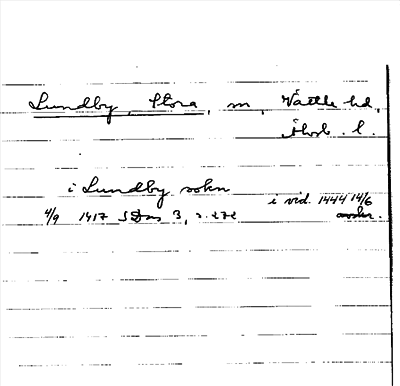 Lundby, Stora, m, Valle hd,
i Lundby sokn
i vid. 1444 14/6
4/9 1417 SD ns 3, s. 272